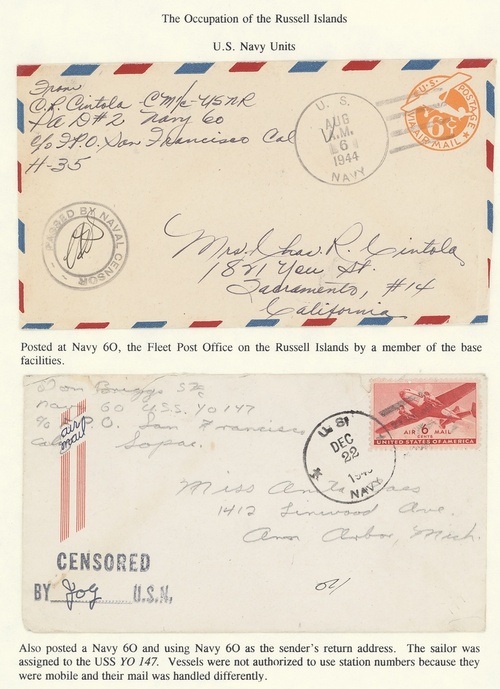 The Occupation of the Russell Islands
U.S. Navy Units
From
C.R. Cintola - CM1/c - USNR
Pa D#2 Navy 60
c/o F.P.O. San Francisco Cal
H-35
U. S.
AUG
A.M.
6
1944
NAVY
U.S. POSTAGE
6¢
VIA AIR MAIL
PASSED BY NAVAL CENSOR
Mrs. Chas. R. Cintola
1821 You St.
Sacramento, #14
California
Posted at Navy 60, the Fleet Post Office on the Russell Islands by a member of the base
facilities.
Tom Briggs
Navy 60 U.S.S. YO 147
% F.P.O. San Francisco
Cal
air
mail
U.S.
DEC
22
NAVY
AIR 6 MAIL
CENTS
UNITED STATES OF AMERICA
Miss Anita
1412 Linwood Ave.
Ann Arbor, Mich.
CENSORED
BY U.S.N.
Also posted a Navy 60 and using Navy 60 as the sender's return address. The sailor was
assigned to the USS YO 147. Vessels were not authorized to use station numbers because they
were mobile and their mail was handled differently.